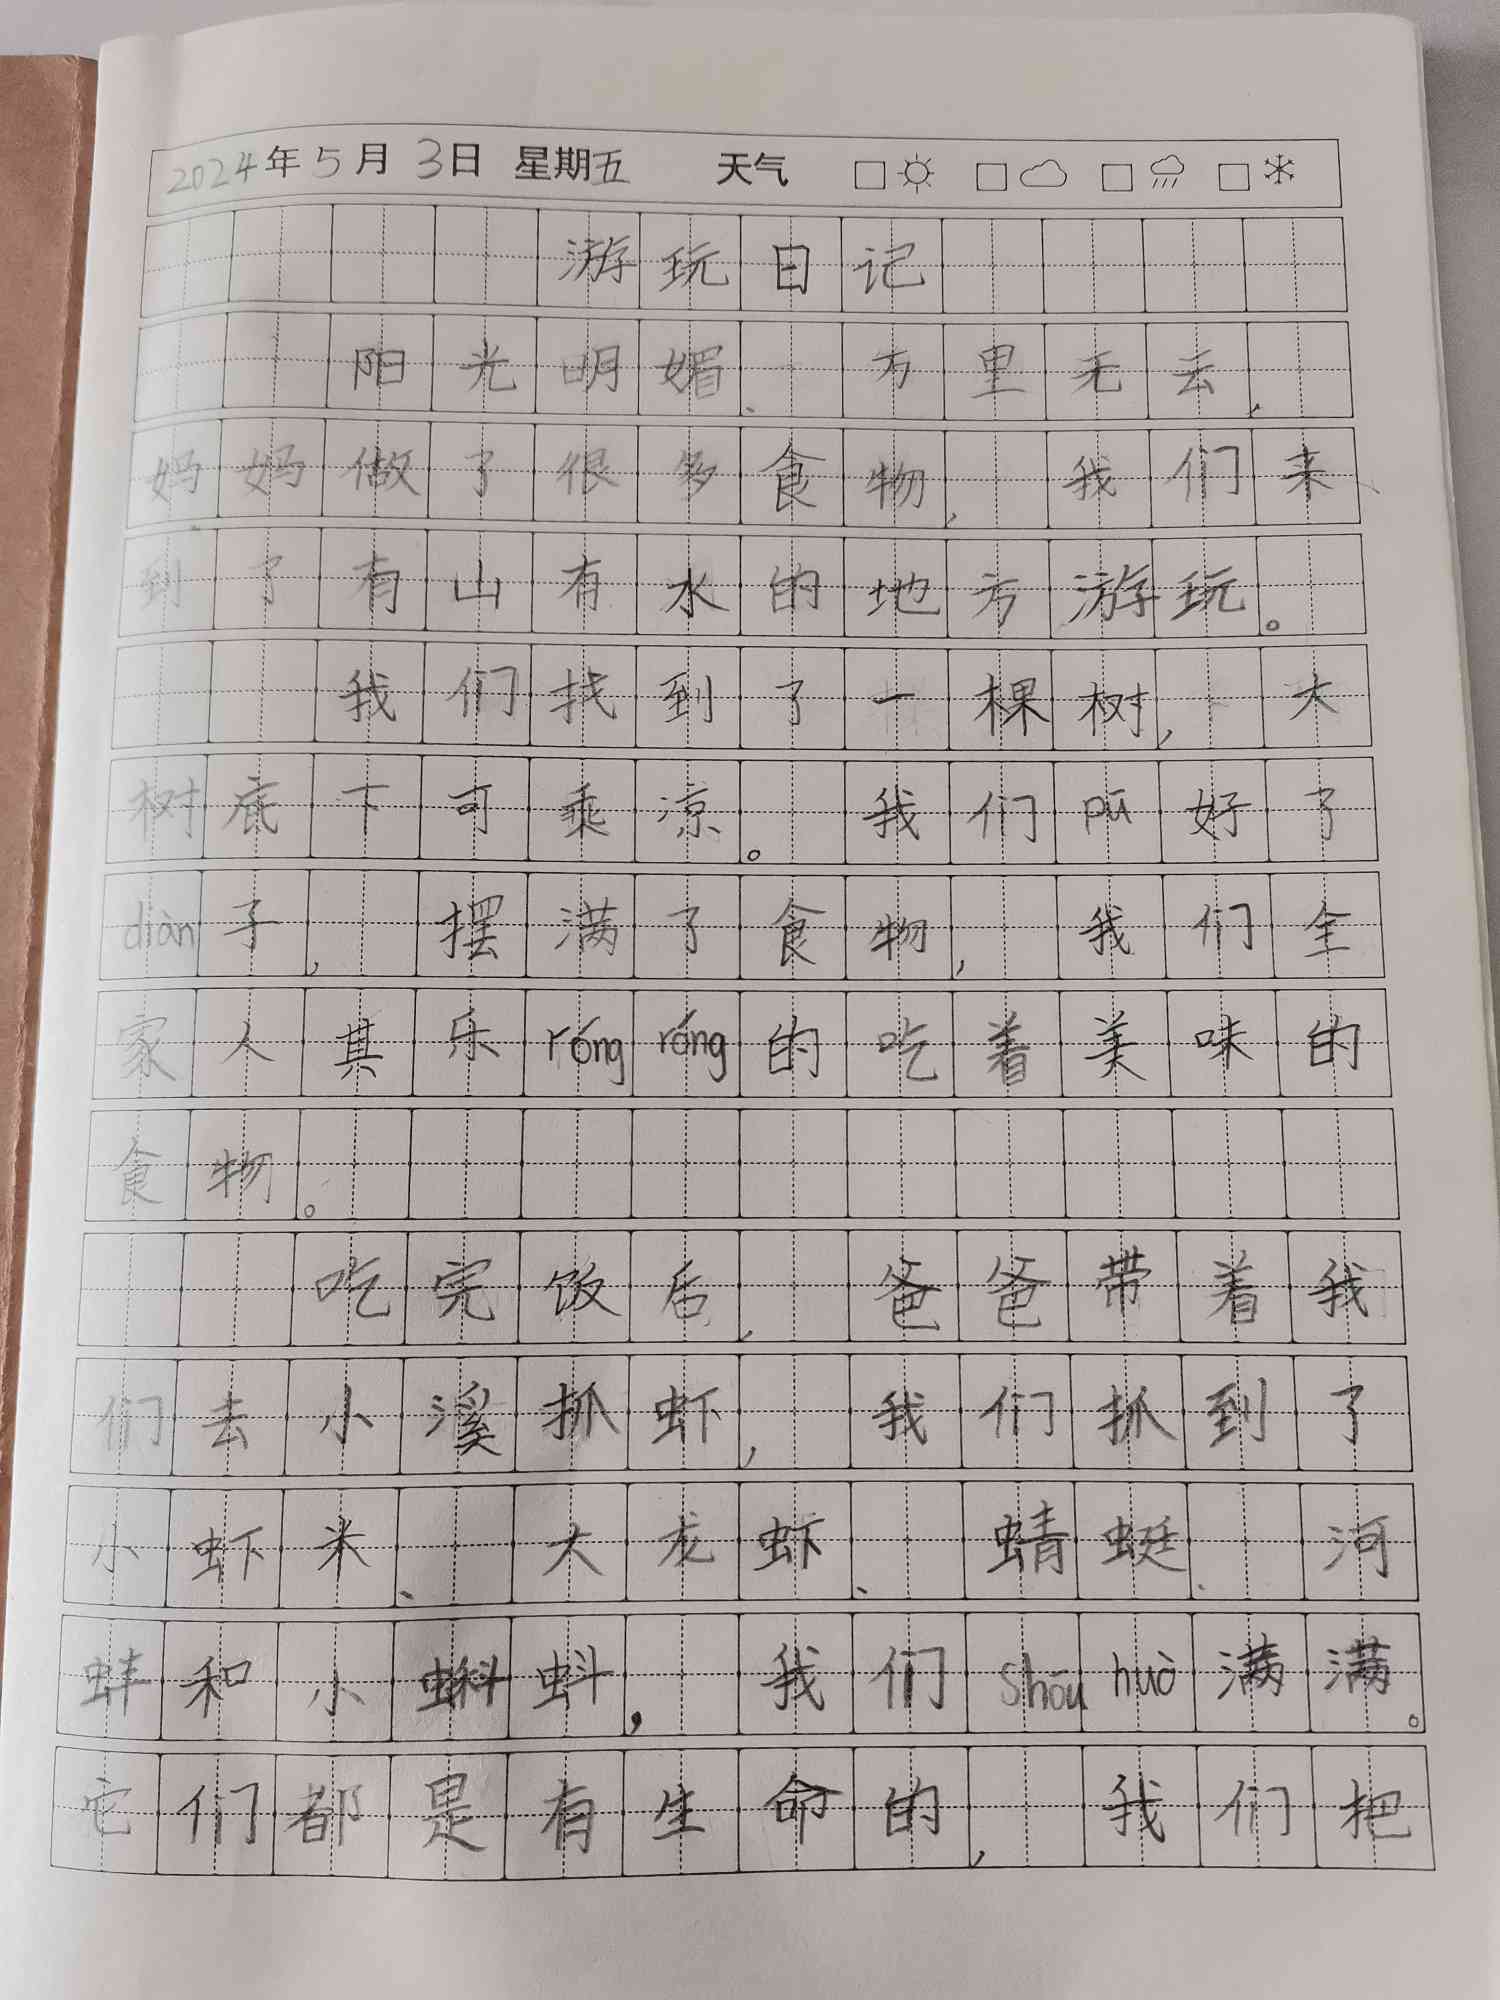 2024年5月3日 星期五 天气
游玩日记
阳光明媚、万里无云,
妈妈做了很多食物,我们来
到了有山有水的地方游玩。
我们找到了一棵树,大
树底下可乘凉。我们pū好了
diàn子,摆满了食物,我们全
家人其乐róngróng的吃着美味的
食物。
吃完饭后,爸爸带着我
们去小溪抓虾,我们抓到了
小虾米、大龙虾、蜻蜓、河
蚌和小蝌蚪,我们shōuhuò满满。
它们都是有生命的,我们把